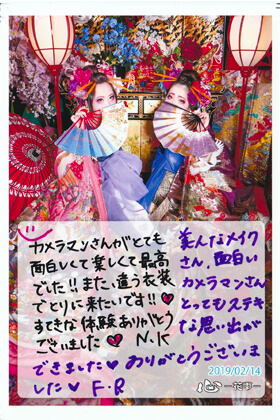 カメラマンさんがとても
面白しくて楽しくて最高
でした!!また、違う衣装
でとりに来たいです!!♥
すてきな体験ありがとう
ございました♥ N.K
美人なメイク
さん、面白い
カメラマンさん
とってもステキ
な思い出が
できました♥ ありがとうございま
した♥ F.R
2019/02/14
心-花雫-